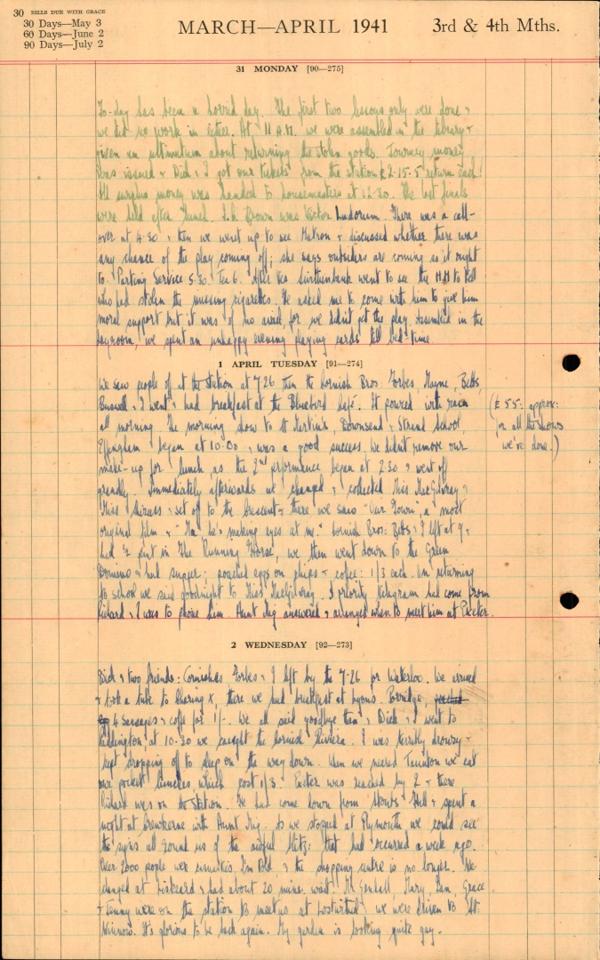 30 BILLS DUE WITH GRACE
30 Days—May 3
60 Days—June 2
90 Days—July 2
MARCH—APRIL 1941
3rd & 4th Mths.
31 MONDAY [90—275]
To-day has been a horrid day. The first two lessons only were done &
we did no work in either. At 11 A.M. we were assembled in the library &
given an ultimatum about returning the stolen goods. Journey money
was issued & Dick & I got our tickets from the station £2-15-5 return each!
All surplus money was handed to housemasters at 12.30. The last finals
were held after lunch. Brown was Victor Ludorum. There was a call-
over at 4.30 & then we went up to see Matron & discussed whether there was
any chance of the play coming off; she says outsiders are coming so it ought
to. Parting Service 5.30. Tea 6. After tea went to see the H.M to tell
who had stolen the missing cigarettes. He asked me to come with him to give him
moral support but it was of no avail for we didn't get the play. Assembled in the
dayroom, we spent an unhappy evening playing cards till bed-time
1 APRIL TUESDAY [91—274]
We saw people off at the Station at 7.26 then the Cornish Bros. Forbes, Mayne, Betts,
& I went & had breakfast at the Bluebird Café. It poured with rain
all morning. The morning show to St Martin's, Downsend & Strand School,
Effingham began at 10.00 & was a good success. We didn't remove our
make-up for lunch as the 2nd performance began at 2.30 & went off
grandly. Immediately afterwards we changed & collected Miss MacGilvray &
Miss & set off to the Crescent & there we saw "Our Town", a most
original film & "Ma he's making eyes at me." Cornish Bros: Betts & I left at 9 &
had ½ pint in "The Running Horse", we then went down to the Green
Domino & had supper; poached eggs on chips & coffee: 1/3 each. On returning
to school we said goodnight to Miss MacGilvray. A priority telegram had come from
Richard & I was to phone him. Aunt Ing answered & arranged when to meet him at Exeter.
(£55: approx:
for all the shows
we've done.)
2 WEDNESDAY [92—273]
Dick & two friends: Cornishes Forbes & I left by the 7-26 for Waterloo. We arrived
& took a tube to Charing X, there we had breakfast at Lyons. Porridge,
4 sausages & coffee for 1/-. We all said goodbye then & Dick & I went to
Paddington, at 10-30 we caught the Cornish Riviera. I was terribly drowsy &
kept dropping off to sleep on the way down. When we neared Taunton we eat
our packet lunches, which cost 1/3. Exeter was reached by 2 & there
Richard was on the Station. He had come down from Hill & spent a
night at Crewkerne with Aunt Ing. As we stopped at Plymouth we could see
the signs all round us of the awful blitz: that had occurred a week ago.
Over 2000 people were casualties I'm told & the shopping centre is no longer. We
changed at Liskeard & had about 20 mins. wait. M. Gendall, Mary, Pam, Grace
& Jenny were on the station to meet us at Lostwithiel & we were driven to St.
Winnow. It's glorious to be back again. My garden is looking quite gay.